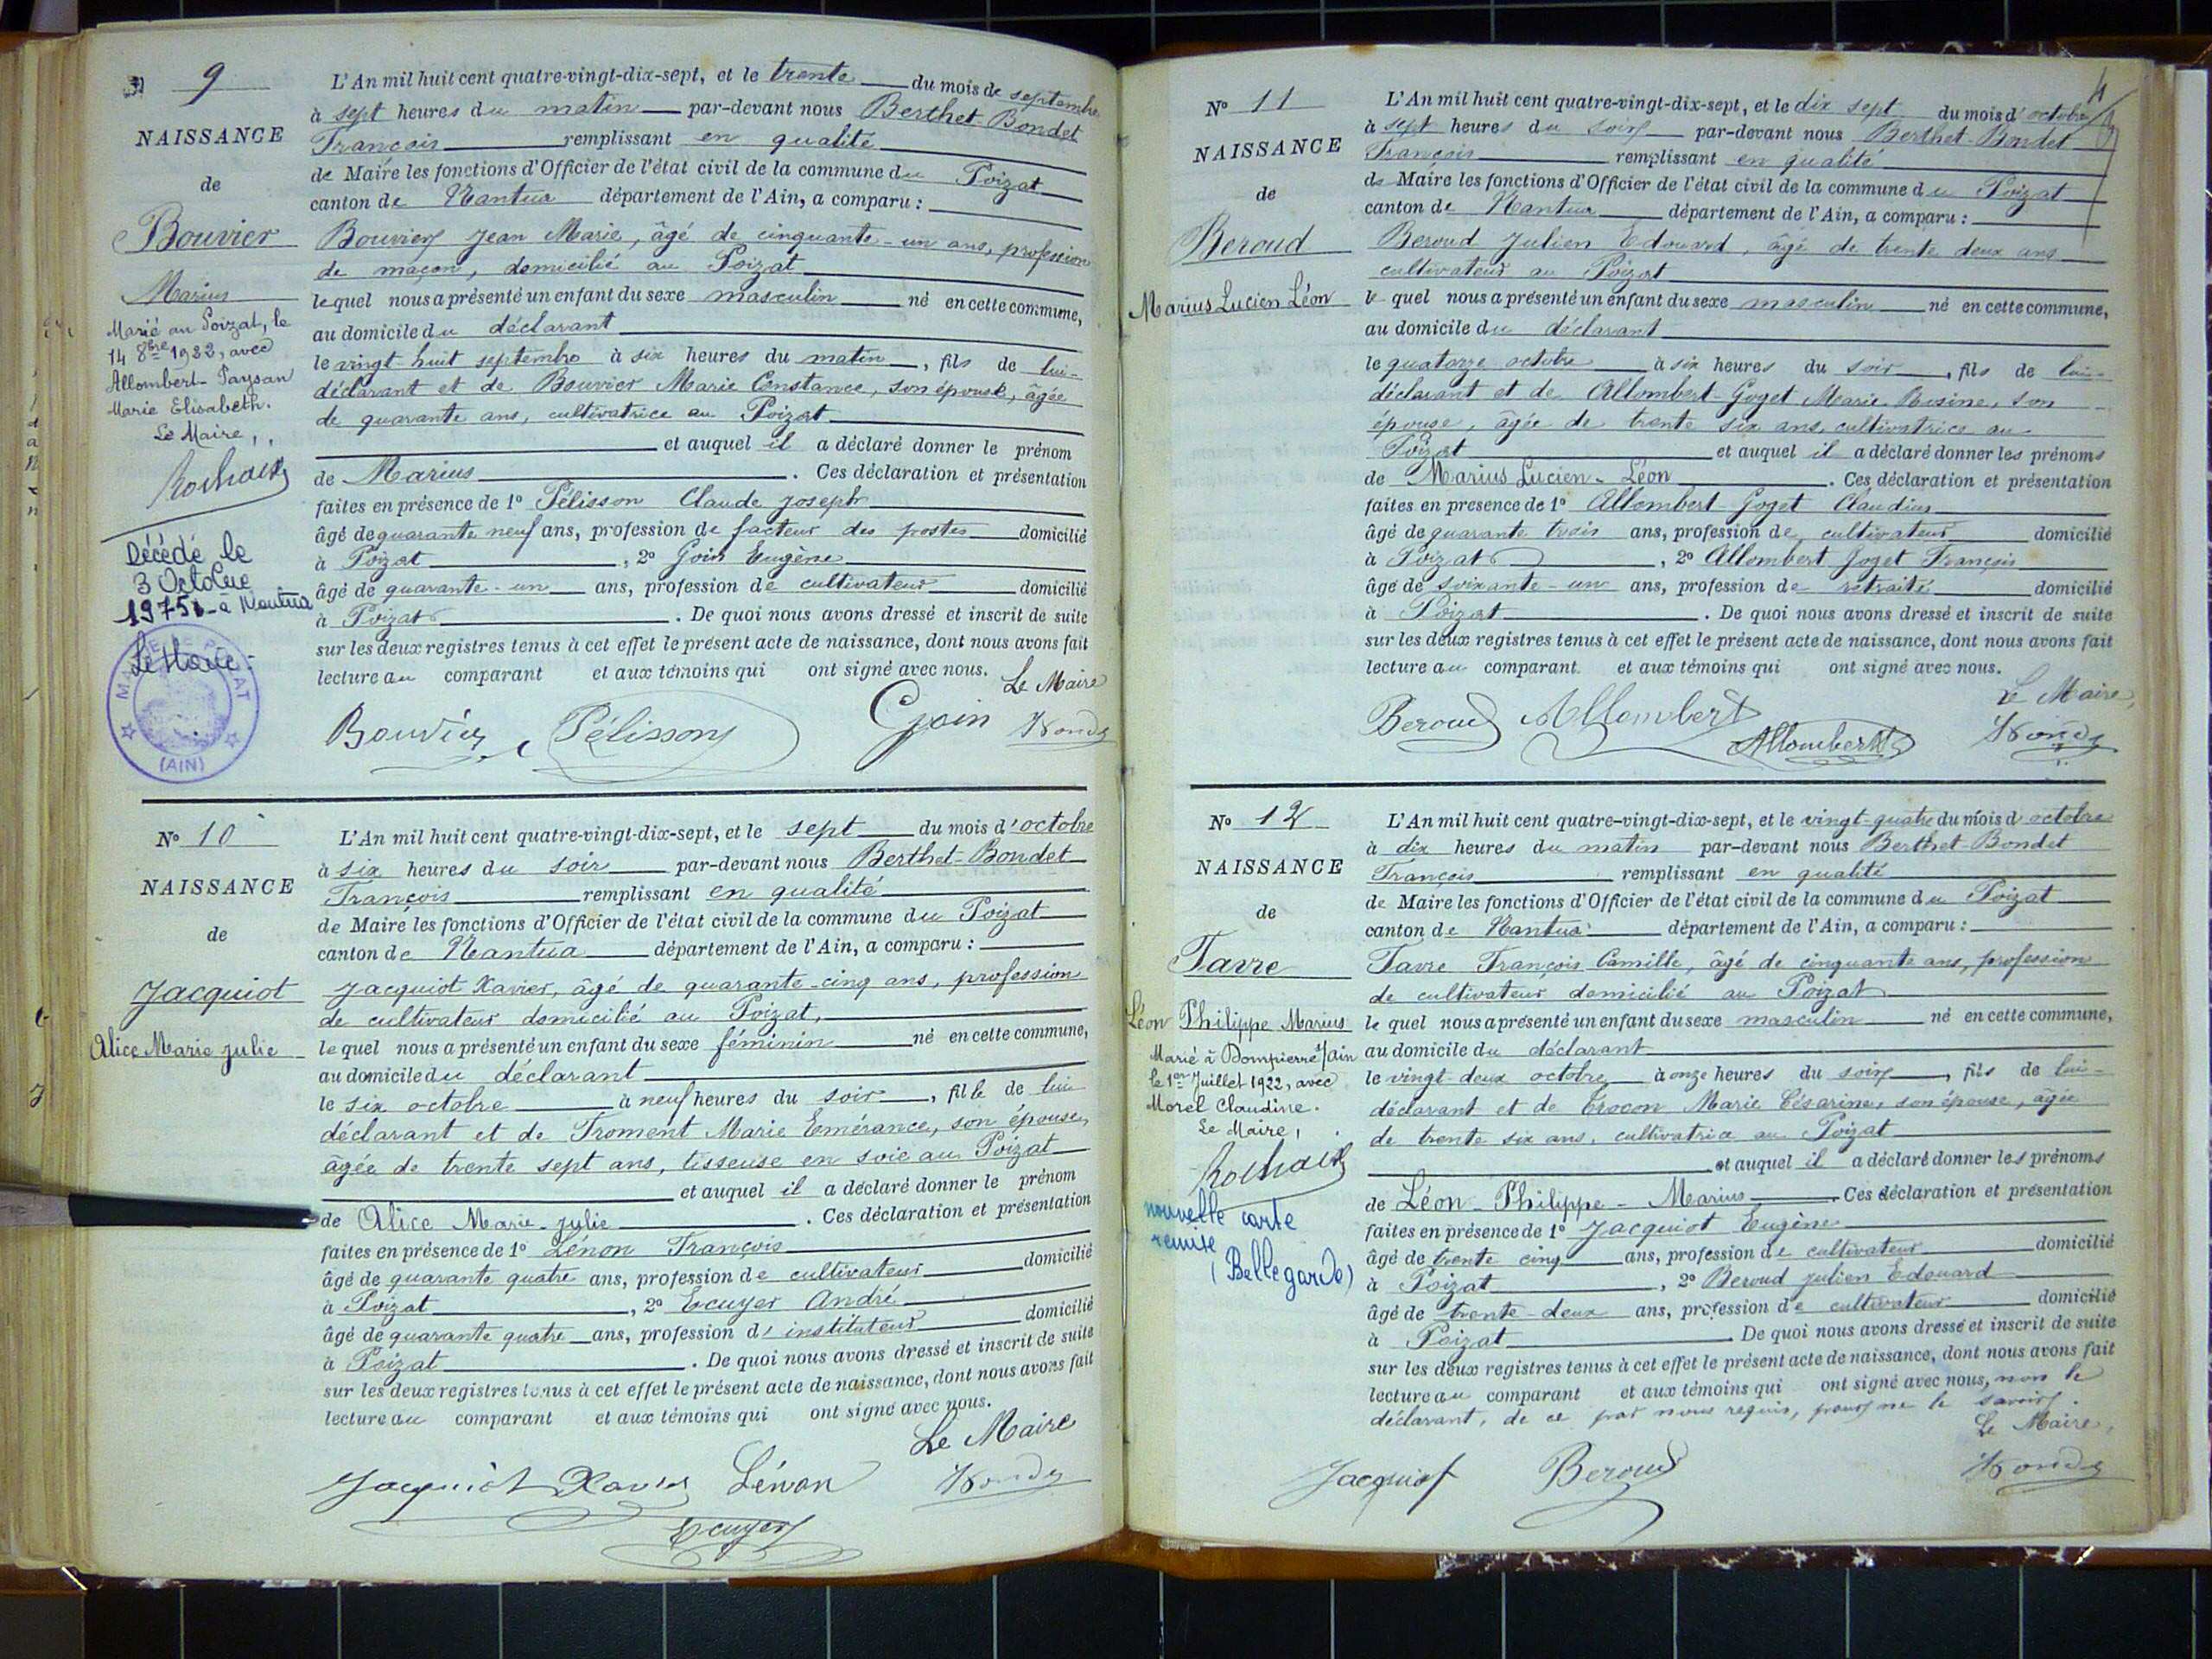 9
NAISSANCE
de
Bouvier
Marius
Marié au Poizat, le
14 8bre 1922, avec
Allombert-Paysan
Marie Elisabeth.
Le Maire,
Rochaix
Décédé le
3 Octobre
1975 à Nantua
Le Maire:
(AIN)
L'An mil huit cent quatre-vingt-dix-sept, et le trente du mois de septembre
à sept heures du matin par-devant nous Berthet Bondet
François remplissant en qualité
de Maire les fonctions d'Officier de l'état civil de la commune du Poizat
canton de Nantua département de l'Ain, a comparu :
Bouvier Jean Marie, âgé de cinquante-un ans, profession
de maçon, domicilié au Poizat
lequel nous a présenté un enfant du sexe masculin né en cette commune,
au domicile du déclarant
le vingt-huit septembre à six heures du matin, fils de lui-
déclarant et de Bouvier Marie Constance, son épouse, âgée
de quarante ans, cultivatrice au Poizat
et auquel il a déclaré donner le prénom
de Marius. Ces déclaration et présentation
faites en présence de 1º Pélisson Claude Joseph
âgé de quarante neuf ans, profession de facteur des postes domicilié
à Poizat, 2º Goin Eugène
âgé de quarante-un ans, profession de cultivateur domicilié
à Poizat. De quoi nous avons dressé et inscrit de suite
sur les deux registres tenus à cet effet le présent acte de naissance, dont nous avons fait
lecture au comparant et aux témoins qui ont signé avec nous.
Le Maire
Bouvier Pélisson Goin
Nº 10
NAISSANCE
de
Jacquiot
Alice Marie Julie
L'An mil huit cent quatre-vingt-dix-sept, et le sept du mois d'octobre
à six heures du soir par-devant nous Berthet-Bondet
François remplissant en qualité
de Maire les fonctions d'Officier de l'état civil de la commune du Poizat
canton de Nantua département de l'Ain, a comparu :
Jacquiot Xavier, âgé de quarante-cinq ans, profession
de cultivateur domicilié au Poizat,
lequel nous a présenté un enfant du sexe féminin né en cette commune,
au domicile du déclarant
le six octobre à neuf heures du soir, fille de lui
déclarant et de Froment Marie Emérance, son épouse,
âgée de trente sept ans, tisseuse en soie au Poizat
et auquel il a déclaré donner le prénom
de Alice Marie-Julie. Ces déclaration et présentation
faites en présence de 1º Lénon François
âgé de quarante quatre ans, profession de cultivateur domicilié
à Poizat, 2º Ecuyer André
âgé de quarante quatre ans, profession d'instituteur domicilié
à Poizat. De quoi nous avons dressé et inscrit de suite
sur les deux registres tenus à cet effet le présent acte de naissance, dont nous avons fait
lecture au comparant et aux témoins qui ont signé avec nous.
Le Maire
Jacquiot Xavier Lénon
Ecuyer
4
Nº 11
NAISSANCE
de
Beroud
Marius Lucien Léon
L'An mil huit cent quatre-vingt-dix-sept, et le dix sept du mois d'octobre
à sept heures du soir par-devant nous Berthet-Bondet
François remplissant en qualité
de Maire les fonctions d'Officier de l'état civil de la commune du Poizat
canton de Nantua département de l'Ain, a comparu :
Beroud Julien Edouard, âgé de trente deux ans
cultivateur au Poizat
le quel nous a présenté un enfant du sexe masculin né en cette commune,
au domicile du déclarant
le quatorze octobre à six heures du soir, fils de lui-
déclarant et de Allombert-Goget Marie Rosine, son
épouse, âgée de trente six ans, cultivatrice au
Poizat et auquel il a déclaré donner les prénoms
de Marius Lucien-Léon. Ces déclaration et présentation
faites en présence de 1º Allombert Goget Claudius
âgé de quarante trois ans, profession de cultivateur domicilié
à Poizat, 2º Allombert Goget François
âgé de soixante-un ans, profession de retraité domicilié
à Poizat. De quoi nous avons dressé et inscrit de suite
sur les deux registres tenus à cet effet le présent acte de naissance, dont nous avons fait
lecture au comparant et aux témoins qui ont signé avec nous.
Le Maire,
Beroud Allombert
Allombert
Nº 12
NAISSANCE
de
Favre
Léon Philippe Marius
Marié à Dompierre s/Ain
le 1er Juillet 1922, avec
Morel Claudine.
Le Maire,
Rochaix
nouvelle carte
remise
(Bellegarde)
L'An mil huit cent quatre-vingt-dix-sept, et le vingt-quatre du mois d'octobre
à dix heures du matin par-devant nous Berthet-Bondet
François remplissant en qualité
de Maire les fonctions d'Officier de l'état civil de la commune du Poizat
canton de Nantua département de l'Ain, a comparu :
Favre François Camille, âgé de cinquante ans, profession
de cultivateur domicilié au Poizat
le quel nous a présenté un enfant du sexe masculin né en cette commune,
au domicile du déclarant
le vingt-deux octobre à onze heures du soir, fils de lui-
déclarant et de Erocon Marie Césarine, son épouse, âgée
de trente six ans, cultivatrice au Poizat
et auquel il a déclaré donner les prénoms
de Léon-Philippe-Marius. Ces déclaration et présentation
faites en présence de 1º Jacquiot Eugène
âgé de trente cinq ans, profession de cultivateur domicilié
à Poizat, 2º Beroud Julien Edouard
âgé de trente-deux ans, profession de cultivateur domicilié
à Poizat. De quoi nous avons dressé et inscrit de suite
sur les deux registres tenus à cet effet le présent acte de naissance, dont nous avons fait
lecture au comparant et aux témoins qui ont signé avec nous, non le
déclarant, de ce par nous requis, pour ne le savoir.
Le Maire,
Jacquiot Beroud